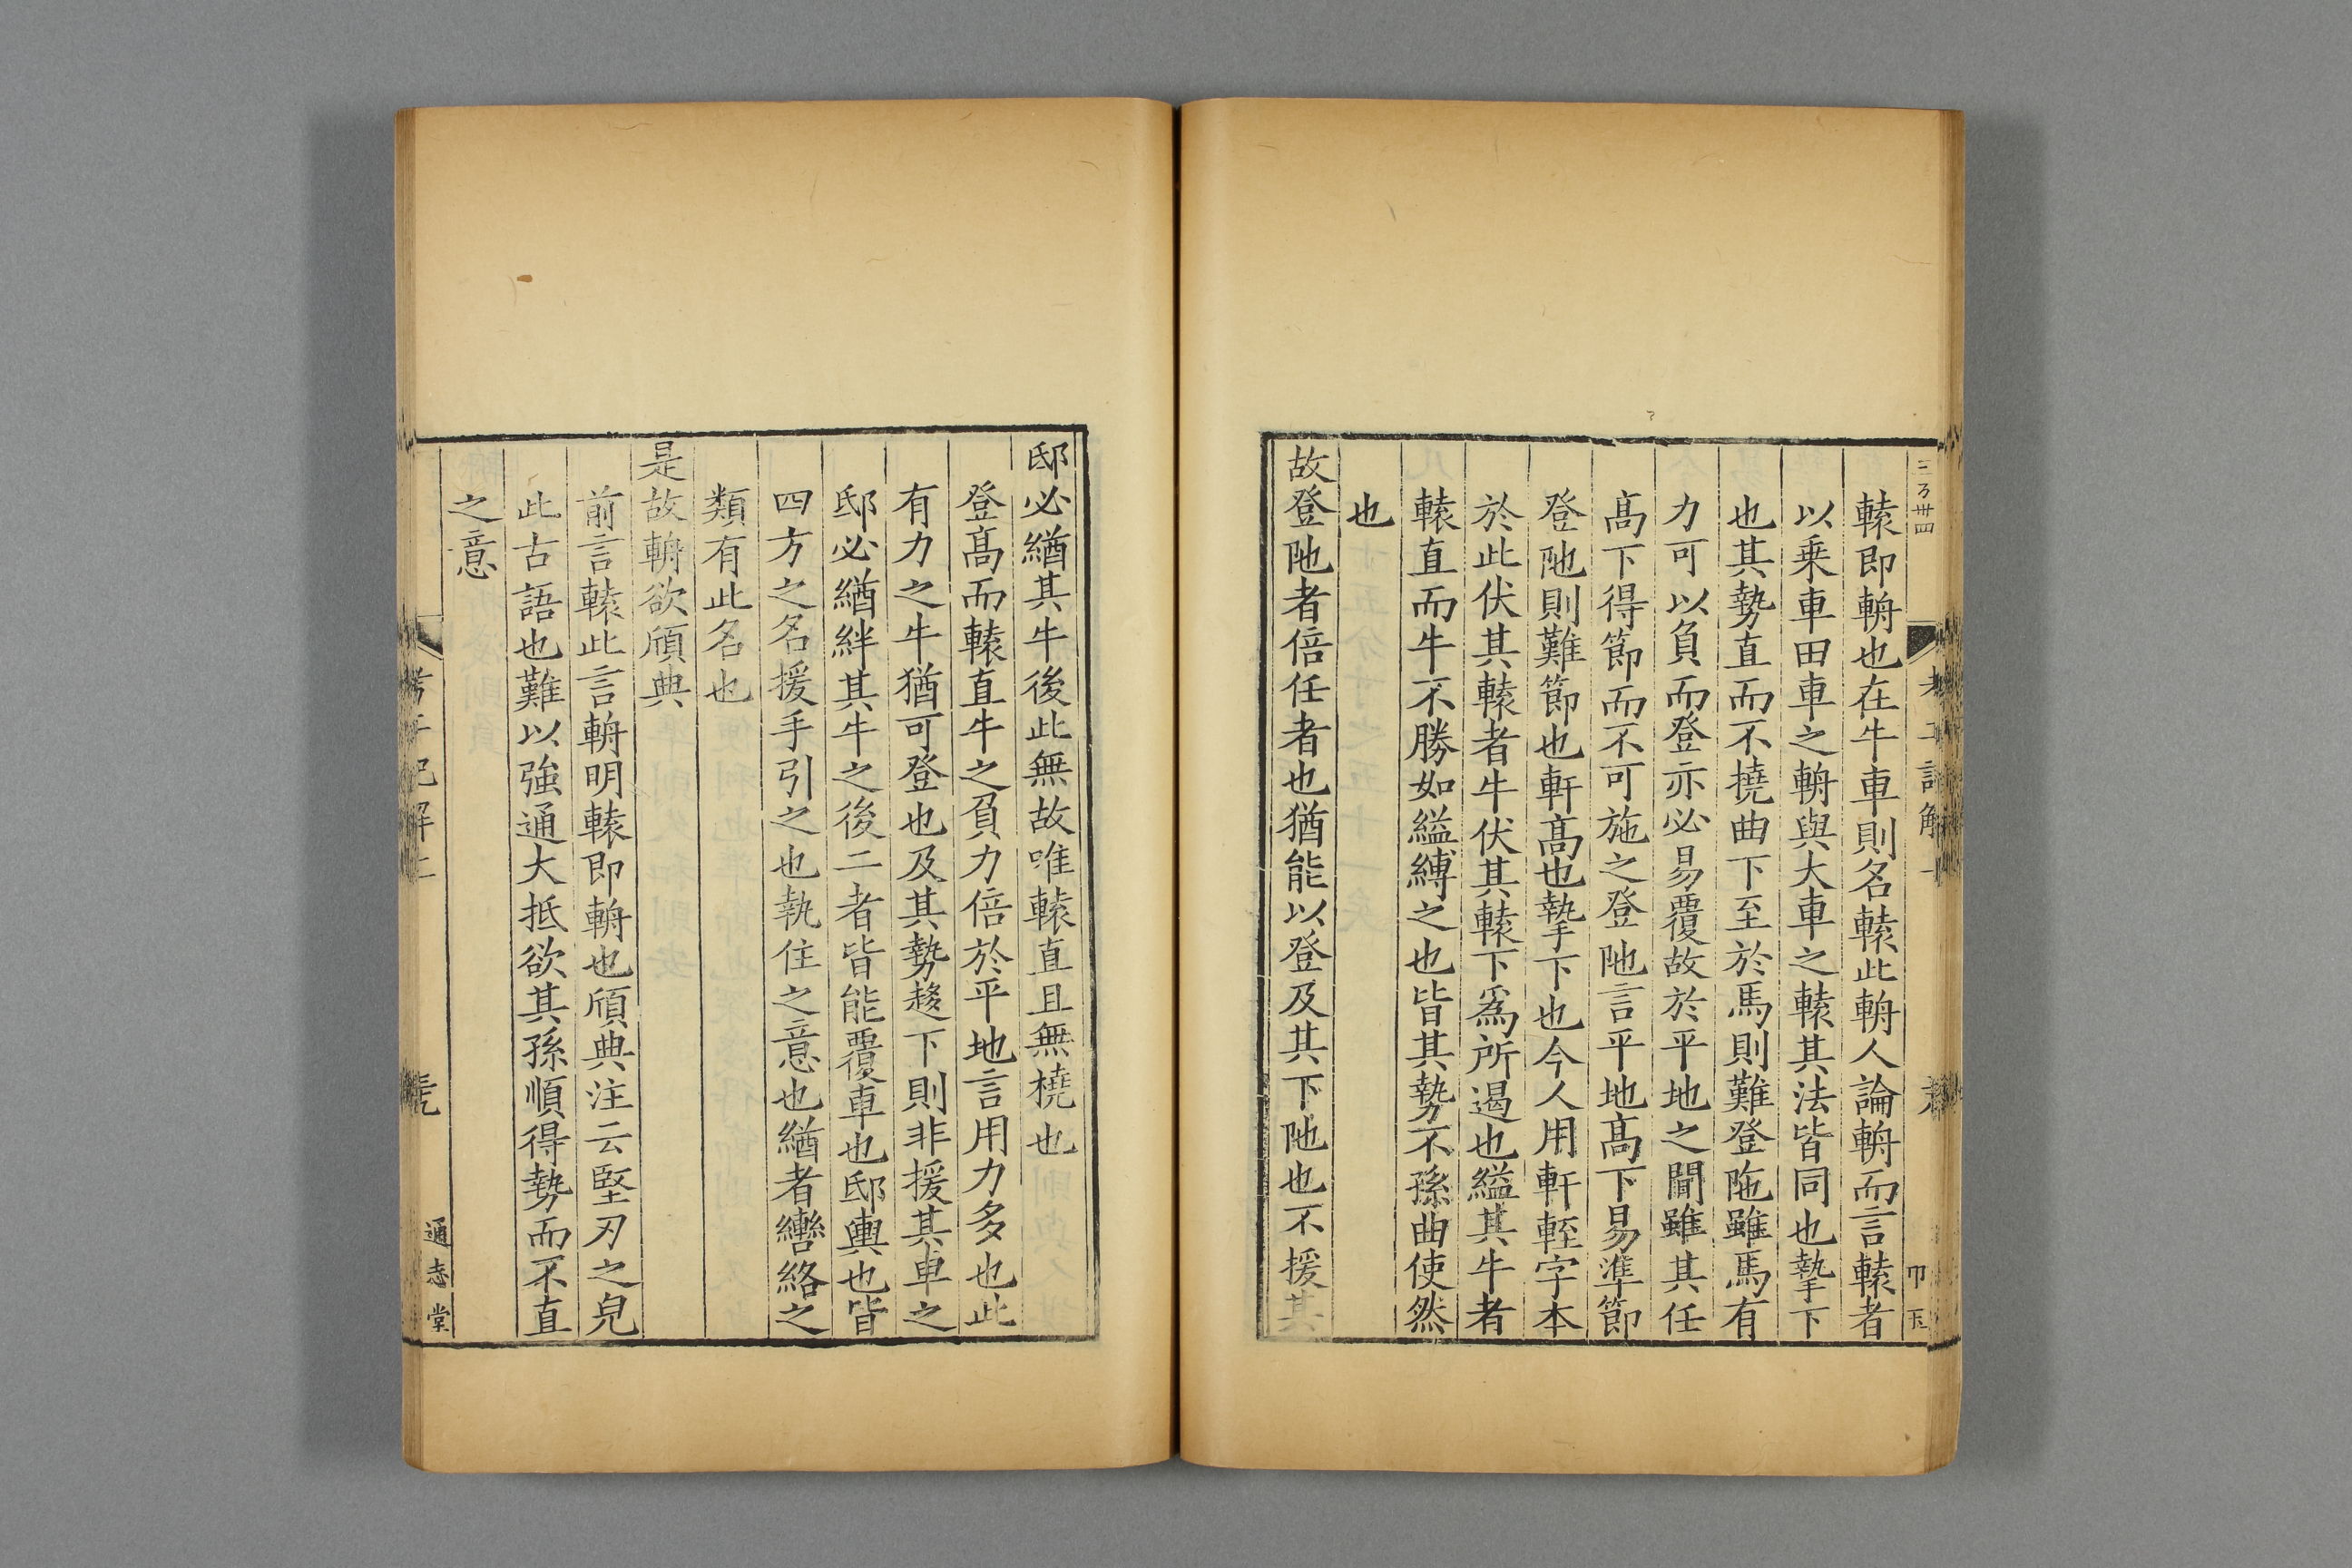 轅即輈也在牛車則名轅此輈人論輈而言轅者
以乗車田車之輈與大車之轅其法皆同也摯下
也其勢直而不撓曲下至於馬則難登阤雖馬有
力可以負而登亦必易覆故於平地之間雖其任
髙下得節而不可施之登阤言平地髙下易準節
登阤則難節也軒髙也摯下也今人用軒輊字本
於此伏其轅者牛伏其轅下爲所遏也縊其牛者
轅直而牛不勝如縊縛之也皆其勢不孫曲使然
也
故登阤者倍任者也猶能以登及其下阤也不援其
邸必緧其牛後此無故唯轅直且無橈也
登髙而轅直牛之負力倍於平地言用力多也此
有力之牛猶可登也及其勢趍下則非援其車之
邸必緧絆其牛之後二者皆能覆車也邸輿也皆
四方之名援手引之也執住之意也緧者轡絡之
類有此名也
是故輈欲頎典
前言轅此言輈明轅即輈也頎典注云堅刃之皃
此古語也難以強通大抵欲其孫順得勢而不直
之意
考工記解上
通志堂